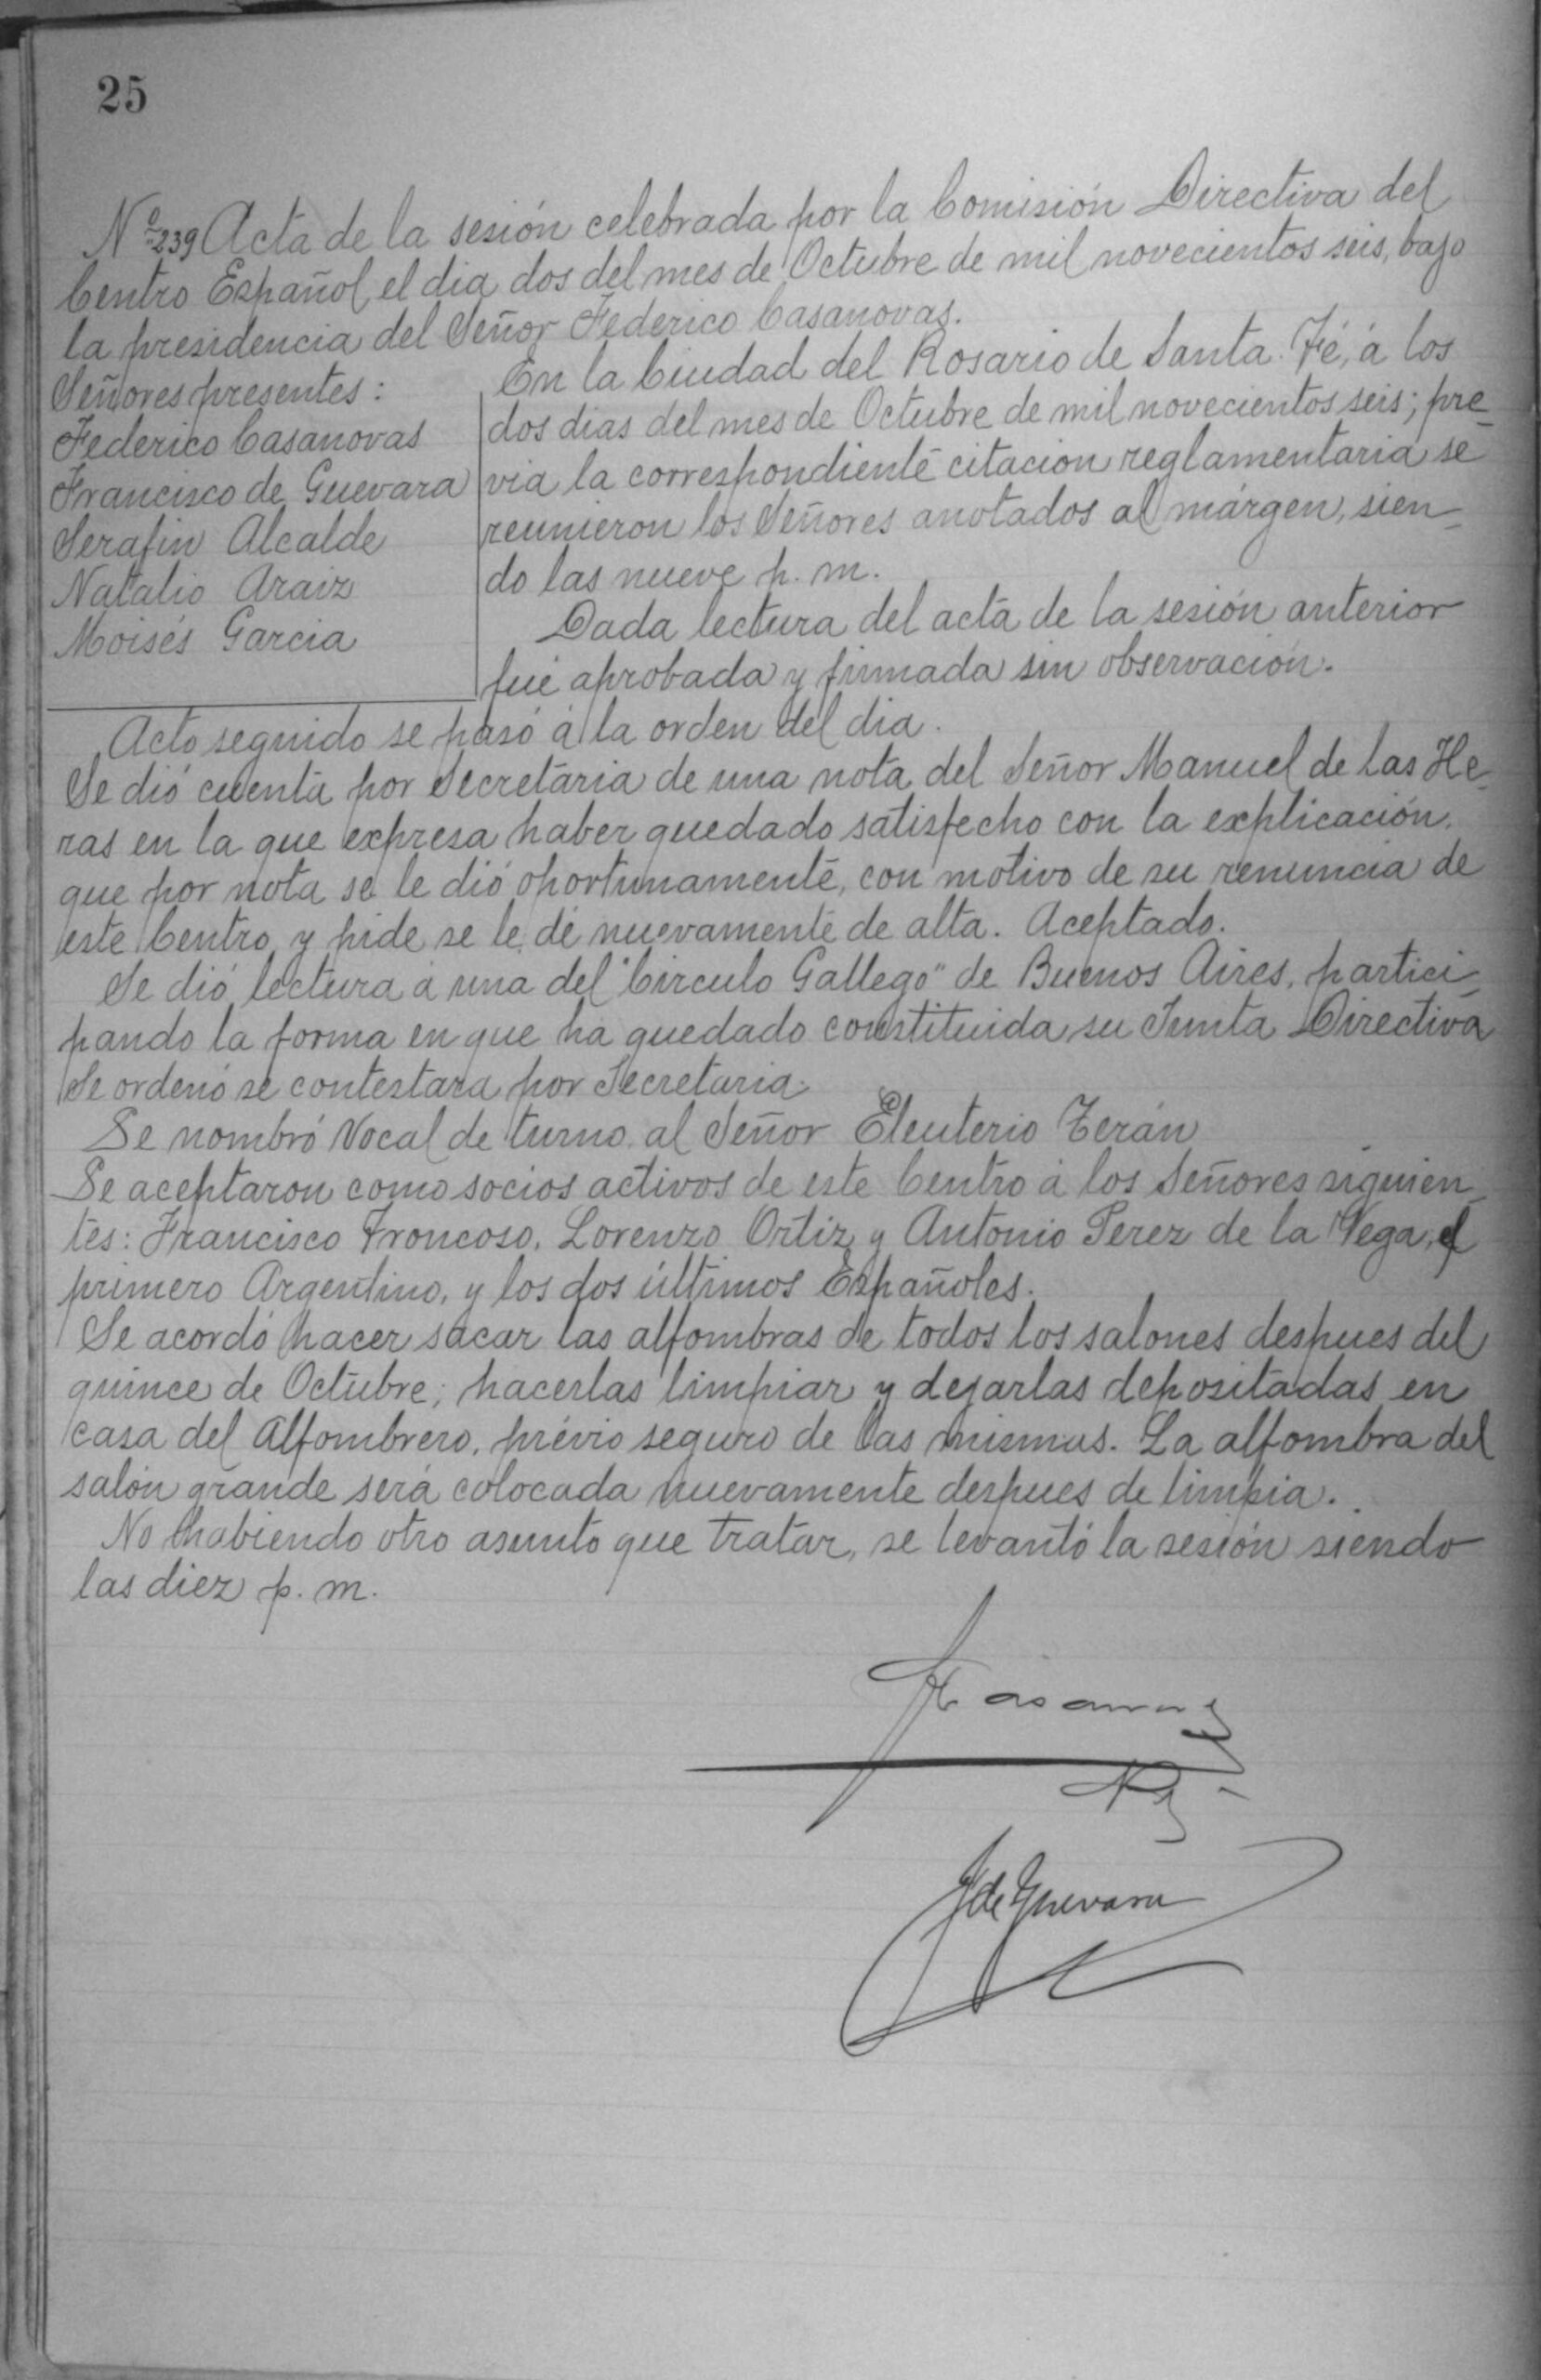 25
Nº 239 Acta de la sesión celebrada por la Comisión Directiva del
Centro Español, el dia dos del mes de Octubre de mil novecientos seis, bajo
la presidencia del Señor Federico Casanovas.
Señores presentes:
Federico Casanovas
Francisco de Guevara
Serafin Alcalde
Natalio Araiz
Moisés Garcia
En la Ciudad del Rosario de Santa Fé, á los
dos dias del mes de Octubre de mil novecientos seis; pre-
via la correspondiente citacion reglamentaria se
reunieron los Señores anotados al márgen, sien-
do las nueve p. m.
Dada lectura del acta de la sesión anterior
fué aprobada y firmada sin observación.
Acto seguido se pasó á la orden del dia.
Se dió cuenta por Secretaria de una nota del Señor Manuel de Las He-
ras en la que expresa haber quedado satisfecho con la explicación,
que por nota se le dió oportunamente, con motivo de su renuncia de
este Centro, y pide se le dé nuevamente de alta. Aceptado.
Se dió lectura á una del "Circulo Gallego" de Buenos Aires, partici-
pando la forma en que ha quedado constituida su Junta Directiva
Se ordenó se contestara por Secretaria.
Se nombró Vocal de turno al Señor Eleuterio Terán
Se aceptaron como socios activos de este Centro á los Señores siguien-
tes: Francisco Troncoso, Lorenzo Ortiz y Antonio Perez de la Vega, el
primero Argentino, y los dos últimos Españoles.
Se acordó hacer sacar las alfombras de todos los salones despues del
quince de Octubre; hacerlas limpiar y dejarlas depositadas en
casa del Alfombrero, prévio seguro de las mismas. La alfombra del
salón grande será colocada nuevamente despues de limpia.
No habiendo otro asunto que tratar, se levantó la sesión siendo
las diez p. m.
F. Casanovas
F de Guevara